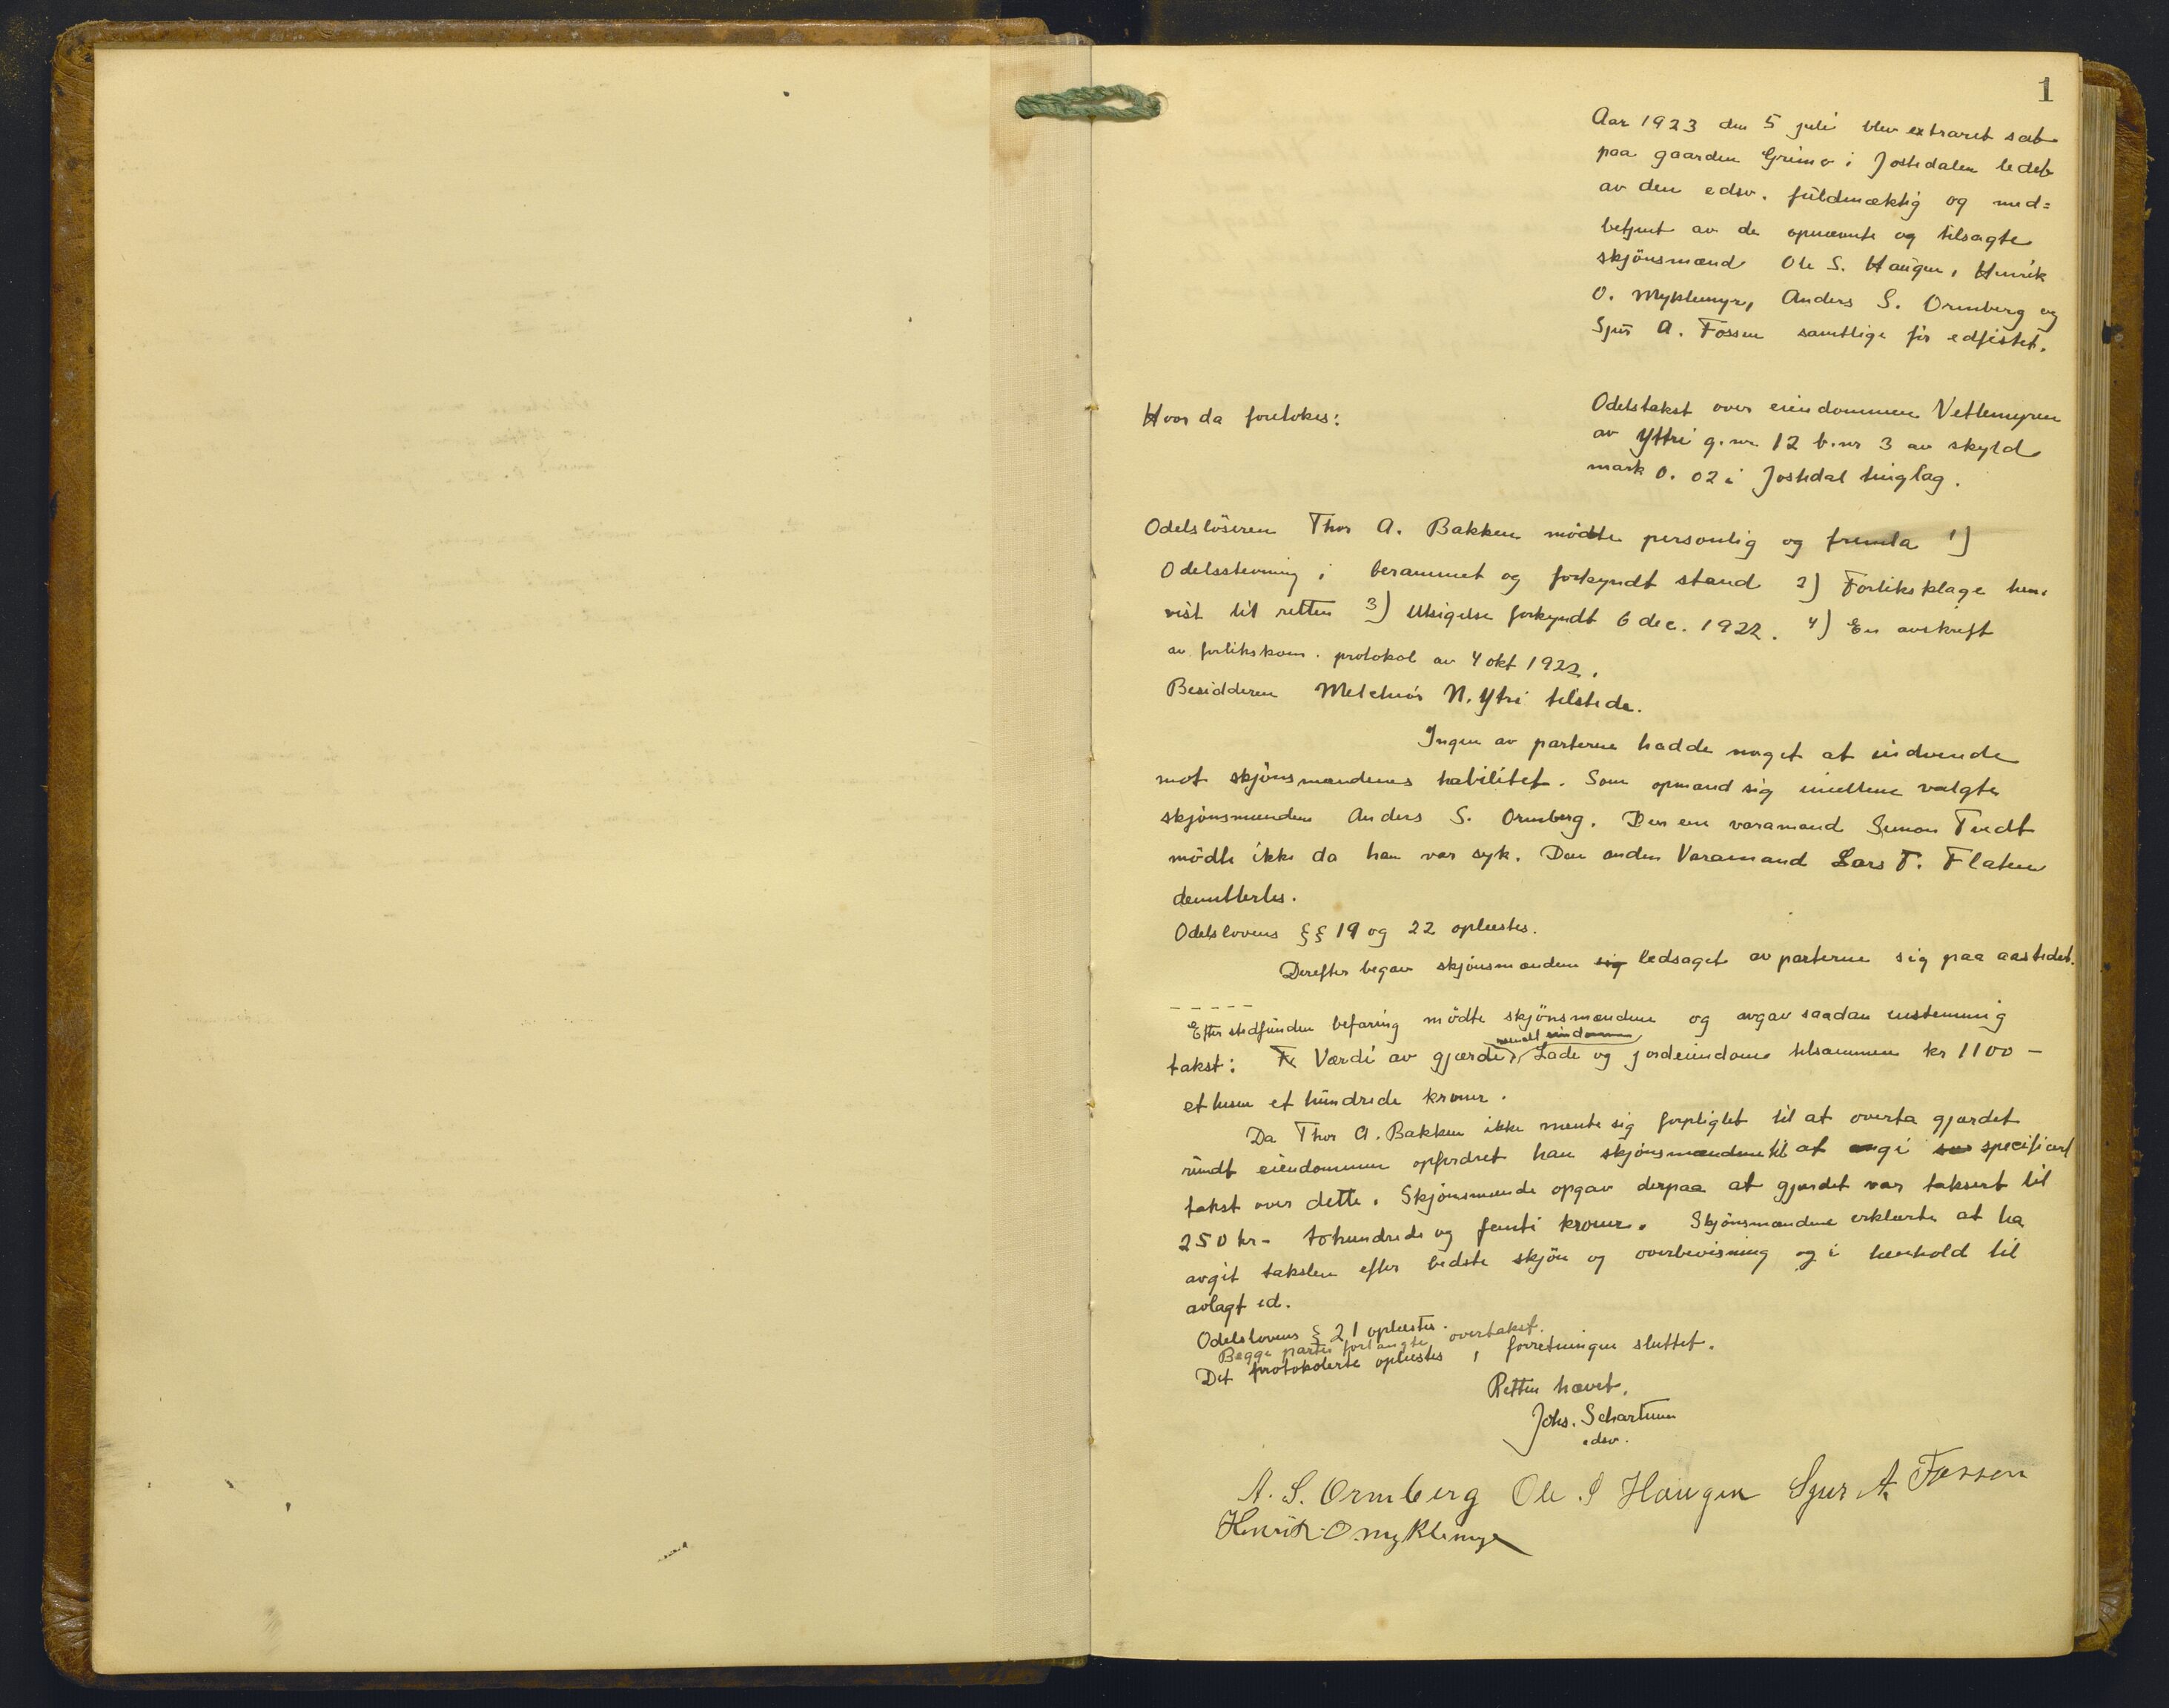 1
Aar 1923 den 5 juli blev extraret sat
paa gaarden Grimo i Jostedalen ledet
av den edsv. fuldmæktig og med=
betjent av de opnævnte og tilsagte
skjönsmænd Ole S. Haugen, Henrik
O. Myklemyr, Anders S. Ormberg og
Sjur A. Fossen samtlige før edfæstet.
Hvor da foretokes:
Odelstakst over eiendommen Vetlemyren
av Yttri g.nr. 12 b.nr 3 av skyld
mark 0.02 i Jostedal tinglag.
Odelslöseren Thor A. Bakken mødte personlig og fremla 1)
Odelsstevning i berammet og forkyndt stand 2) Forliksklage hen-
vist til retten 3) Utsigelse forkyndt 6 dec. 1922. 4) En avskrift
av forlikskom. protokol av 4 okt 1922.
Besidderen Melchior N. Ytri tilstede.
Ingen av parterne hadde noget at indvende
mot skjönsmændenes habilitet. Som opmand sig imellem valgte
skjönsmænden Anders S. Ormberg. Den ene varamand Simon Tvedt
mödte ikke da han var syk. Den anden Varamand Lars T. Flaten
demittertes.
Odelslovens §§ 19 og 22 oplæstes.
Derefter begav skjönsmændene sig ledsaget av parterne sig paa aastedet.
- - - - -
Efter stedfunden befaring mödte skjönsmændene og avgav saadan enstemmig
rundt eiendommen
takst: Værdi av gjærde, Lade og jordeiendom tilsammen kr 1100 –
et tusen et hundrede kroner.
Da Thor A. Bakken ikke mente sig forpligtet til at overta gjærdet
rundt eiendommen opfordret han skjönsmændene til at angi specifisert
takst over dette. Skjönsmænde opgav derpaa at gjærdet var taksert til
250 kr - tohundrede og femti kroner. Skjönsmændene erklærte at ha
avgit taksten efter bedste skjön og overbevisning og i henhold til
avlagt ed.
Odelslovens § 21 oplæstes.
Begge parter forlangte overtakst.
Det protokolerte oplæstes, forretningen sluttet.
Retten hævet.
Johs. Schartum
edsv.
A. S. Ormberg Ole S Haugen Sjur A Fossen
Henrik O Myklemyr